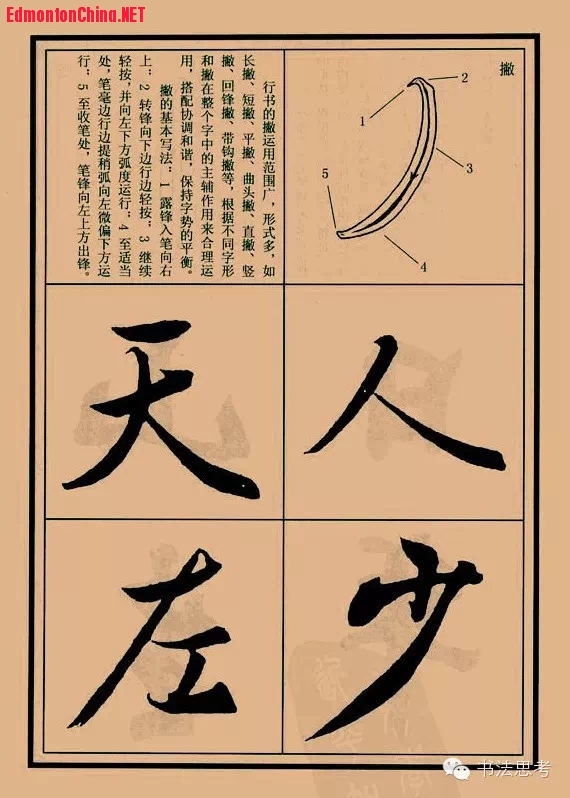 EdmontonChina.NET
撇
1
2
3
4
5
行书的撇运用范围广，形式多，如
长撇、短撇、平撇、曲头撇、直撇、竖
撇、回锋撇、带钩撇等，根据不同字形
和撇在整个字中的主辅作用来合理运
用，搭配协调和谐，保持字势的平衡。
撇的基本写法：1 露锋入笔向右
上；2 转锋向下边行边轻按；3 继续
轻按，并向左下方弧度运行；4 至适当
处，笔毫边行边提稍弧向左微偏下方运
行；5 至收笔处，笔锋向左上方出锋。
人
天
少
左
书法思考